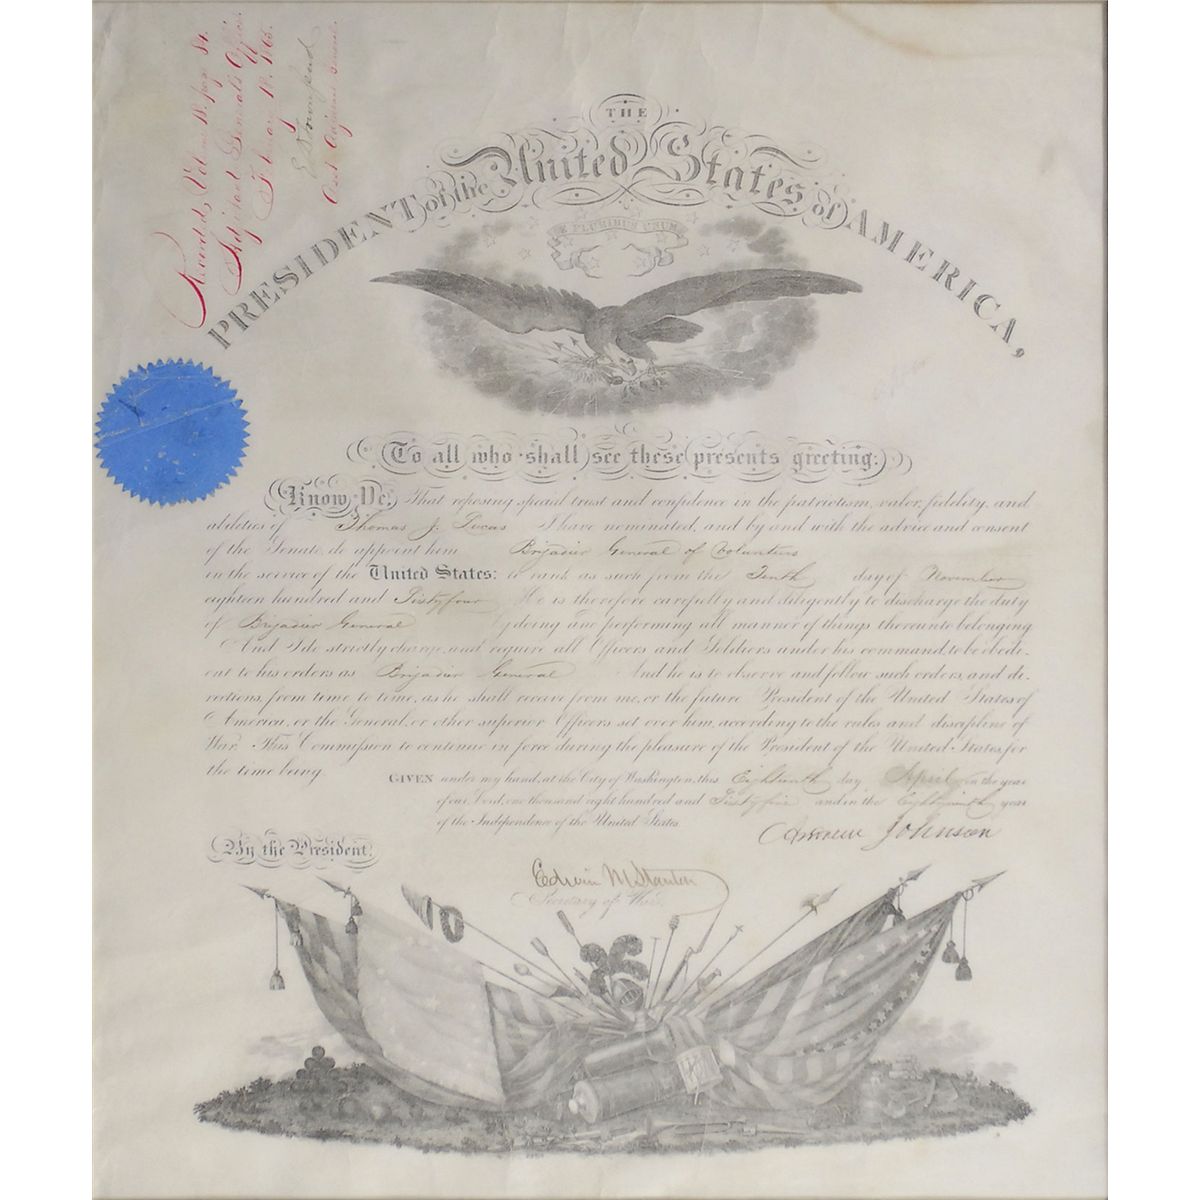 Volume 18. page 84.
Adjutant General's Office
February 18. 1865.
E D Townsend
Asst Adjutant General
THE
PRESIDENT of the United States of AMERICA,
E PLURIBUS UNUM
To all who shall see these presents greeting:
Know Ye, That reposing special trust and confidence in the patriotism, valor, fidelity, and
abilities of Thomas J. Lucas I have nominated, and by and with the advice and consent
of the Senate, do appoint him Brigadier General of Volunteers
in the service of the United States: to rank as such from the Tenth day of November
eighteen hundred and Sixty four He is therefore carefully and diligently to discharge the duty
of Brigadier General by doing and performing all manner of things thereunto belonging
And I do strictly charge, and require all Officers and Soldiers under his command, to be obede-
ent to his orders as Brigadier General And he is to observe and follow such orders, and di-
rections, from time to time, as he shall receive from me, or the future President of the United States of
America, or the General, or other superior Officers set over him, according to the rules and discipline of
War. This Commission to continue in force during the pleasure of the President of the United States, for
the time being.
GIVEN under my hand, at the City of Washington, this Eighteenth day April in the year
of our Lord, one thousand eight hundred and Sixty five and in the Eighty ninth year
of the Independence of the United States.
Andrew Johnson
By the President,
Edwin M Stanton
Secretary of War.